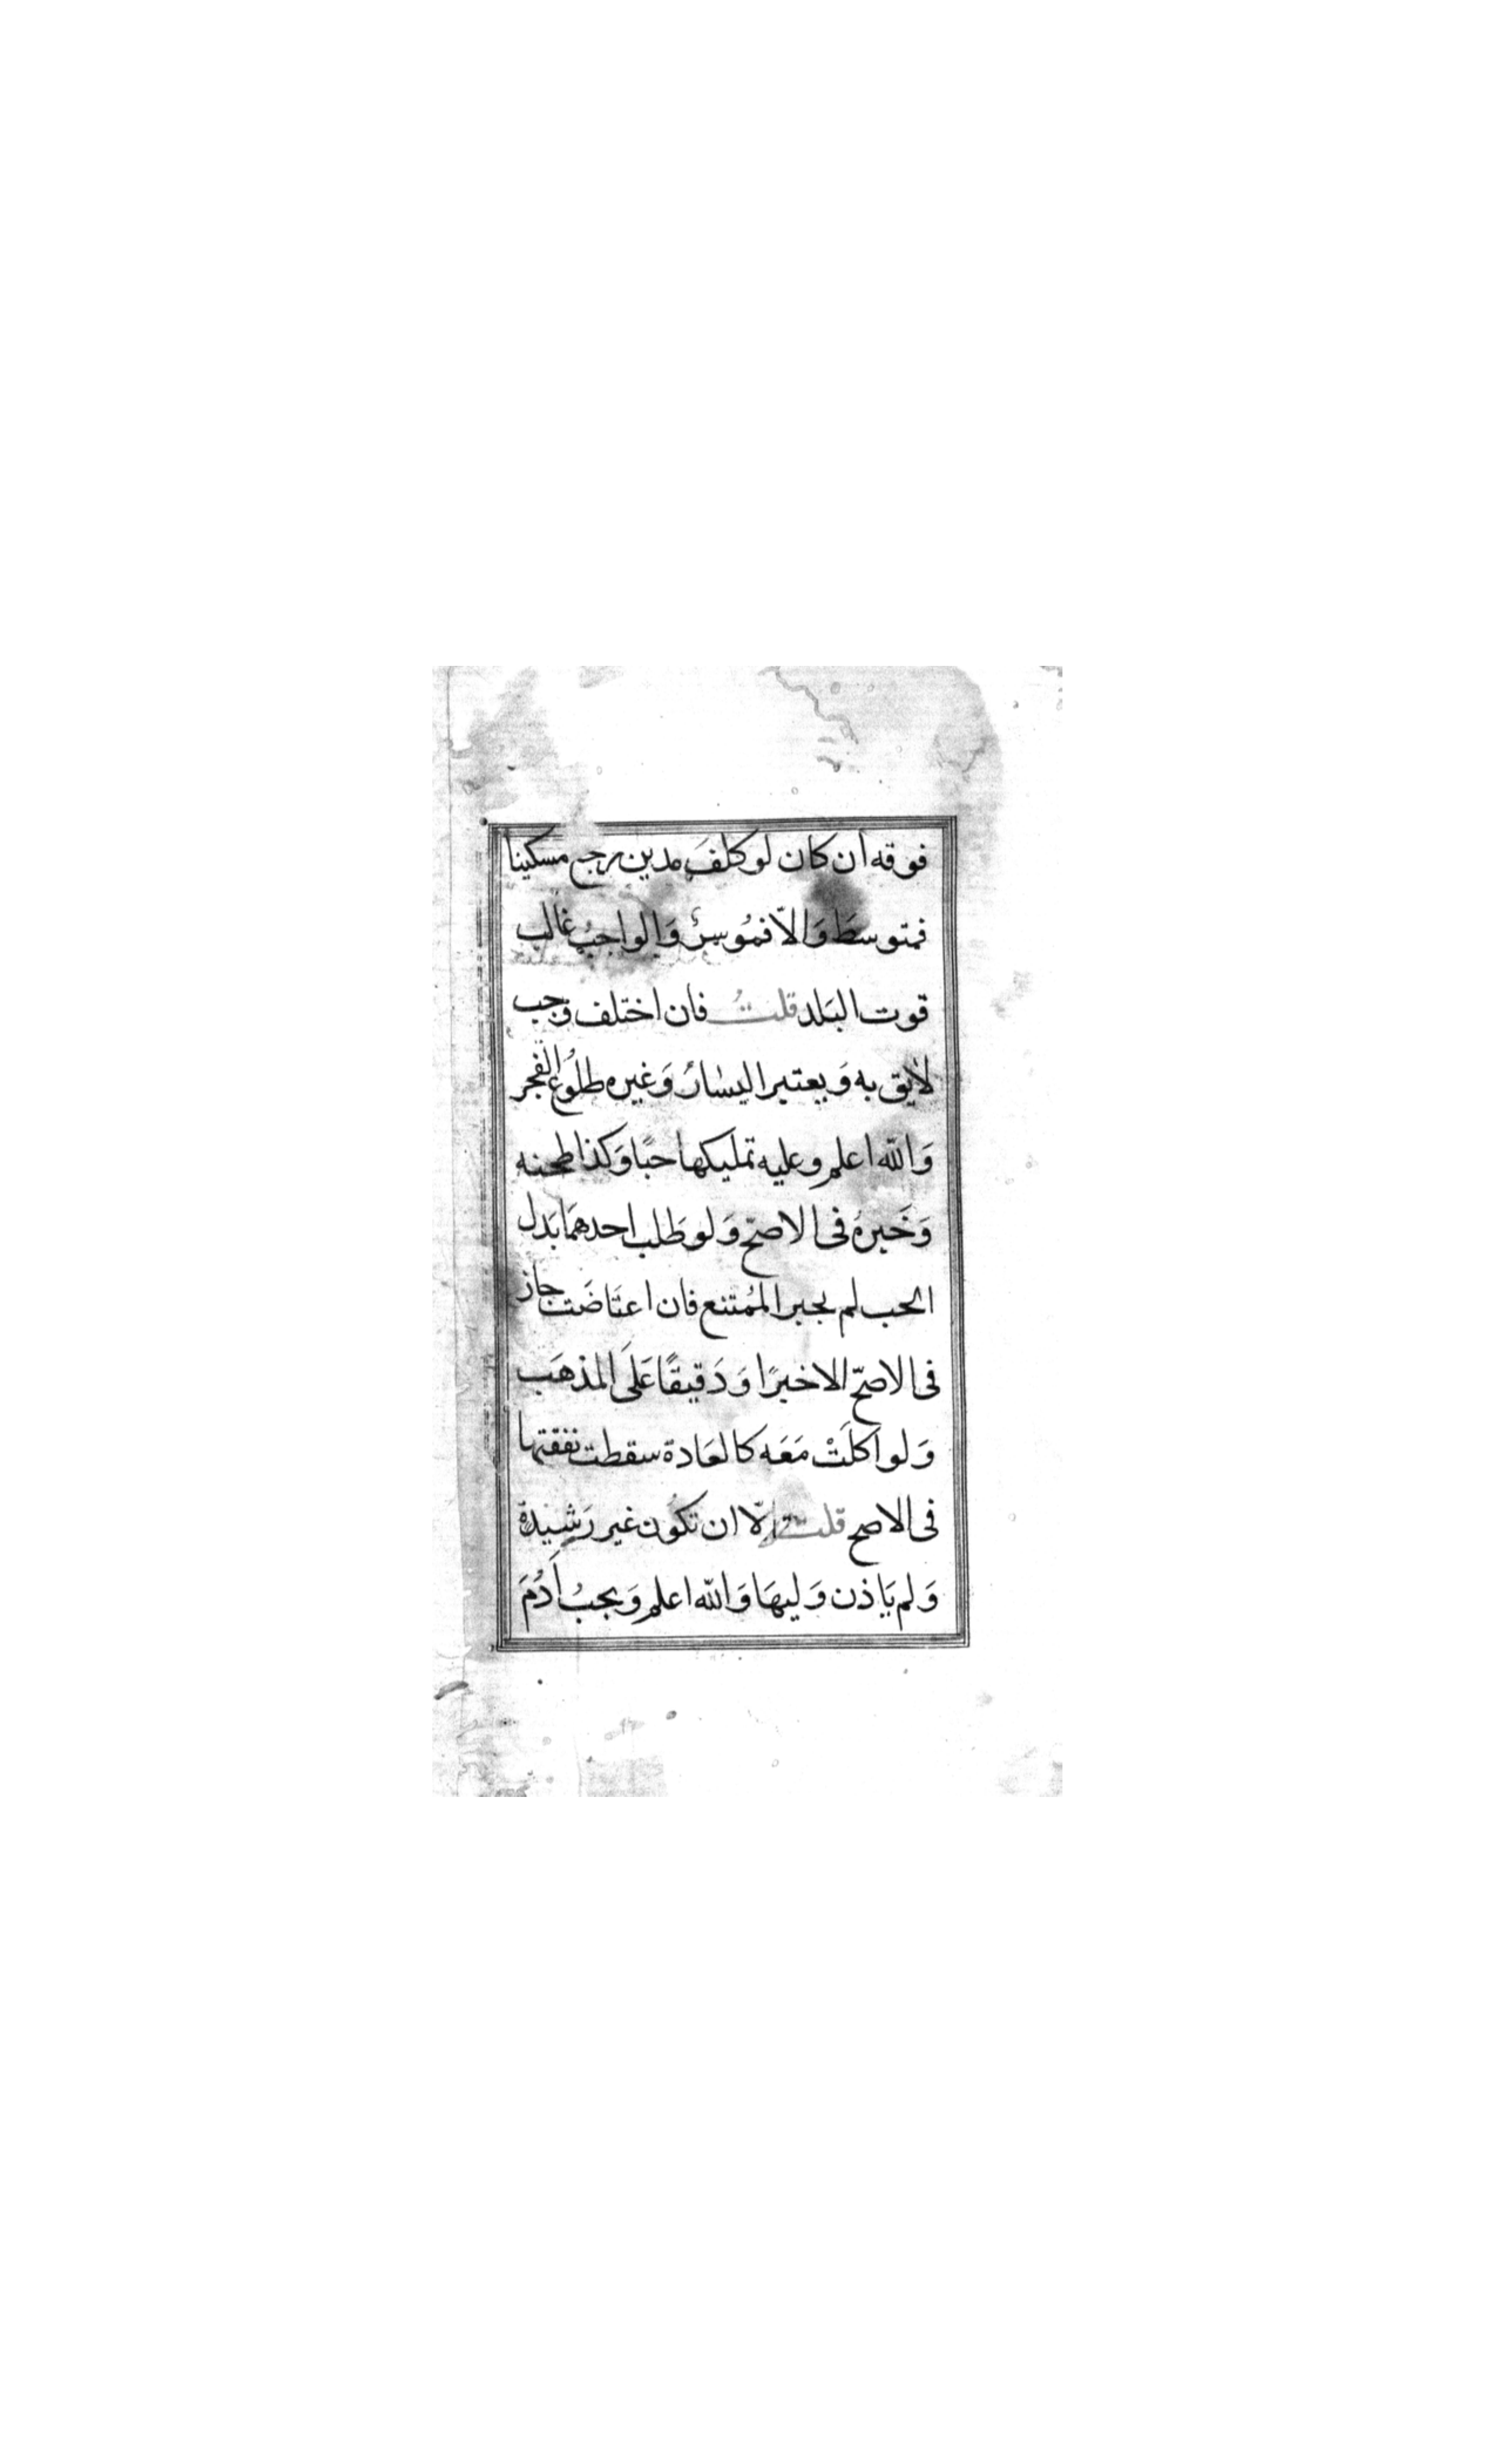 فوقه ان كان لو كلفَ مدين رجع مسكينا
فمتوسطَ وَالاّ فمُوسِرٌ وَالواجبُ غالب
قوت البَلد قلتُ فان اختلف وَجب
لايق به وَيعتبر اليسَارُ وَغيره طلوُع الفجر
وَالله اعلم وعليه تمليكها حبًا وَكذا طحنه
وَخَبزهُ فى الاصحّ وَلو طَلب احدهمَا بَدل
الحب لم يجبر المُمتنع فان اعتَاضَت جاز
فى الاصحّ الا خبزًا وَدَقيقًا عَلَى المذهَب
وَلو اكلَتْ مَعَه كالعَادة سقطت نفقتها
فى الاصح قلت الّا ان تكون غير رَشيدة
وَلم يَاذن وَليهَا وَالله اعلم وَيجبُ اُدُمَ